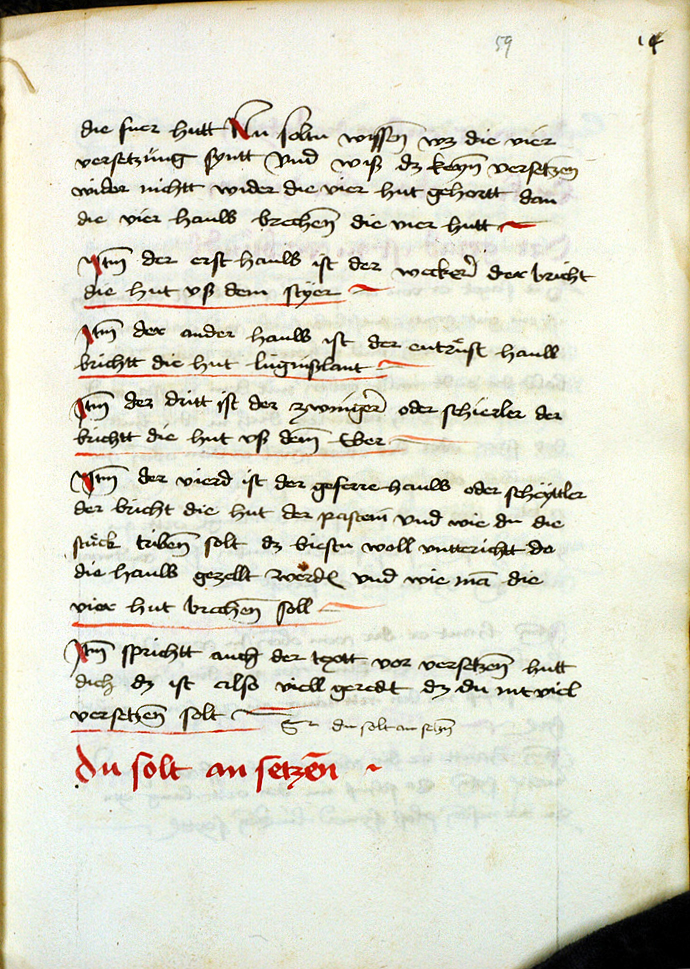 59 14
die fuer hutt Nu soltu wyssen wz die vier
versetzüng syntt Vnd wiß dz keyn versetzen
widor nichtt wider die vier hut gehortt dan
die vier hauls brechen die vier hutt
Itm der erst hauls ist der weckerˀ der bricht
die hut vß dem styer
Itm der ander hauls ist der entrüst haull
brichtt die hut luginßlant
Itm der dritt ist der zwnigerˀ oder schierler der
brichtt die hut vß dem Eber
Itm der vierd ist der geferre hauls oder scheyttler
der bricht die hut der pasteiii vnd wie du die
stuck triben solt dz biestu woll vntterichtt do
die hauls gezellt werdē vnd wie mā die
vier hut brechen soll
Itm sprichtt auch der textt vor versetzen hutt
dich dz ist also viell geredt dz du nit viel
versetzen solt du solt an setzn
du solt an setzēn